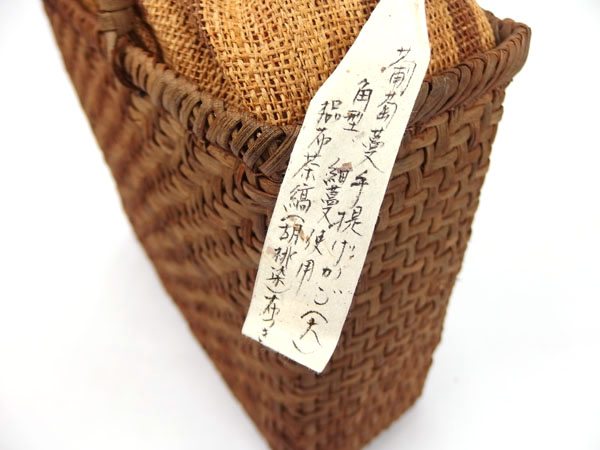 葡萄蔓手提げかご(大)
角型 細蔓使用
榀布茶縞(胡桃染)布つき